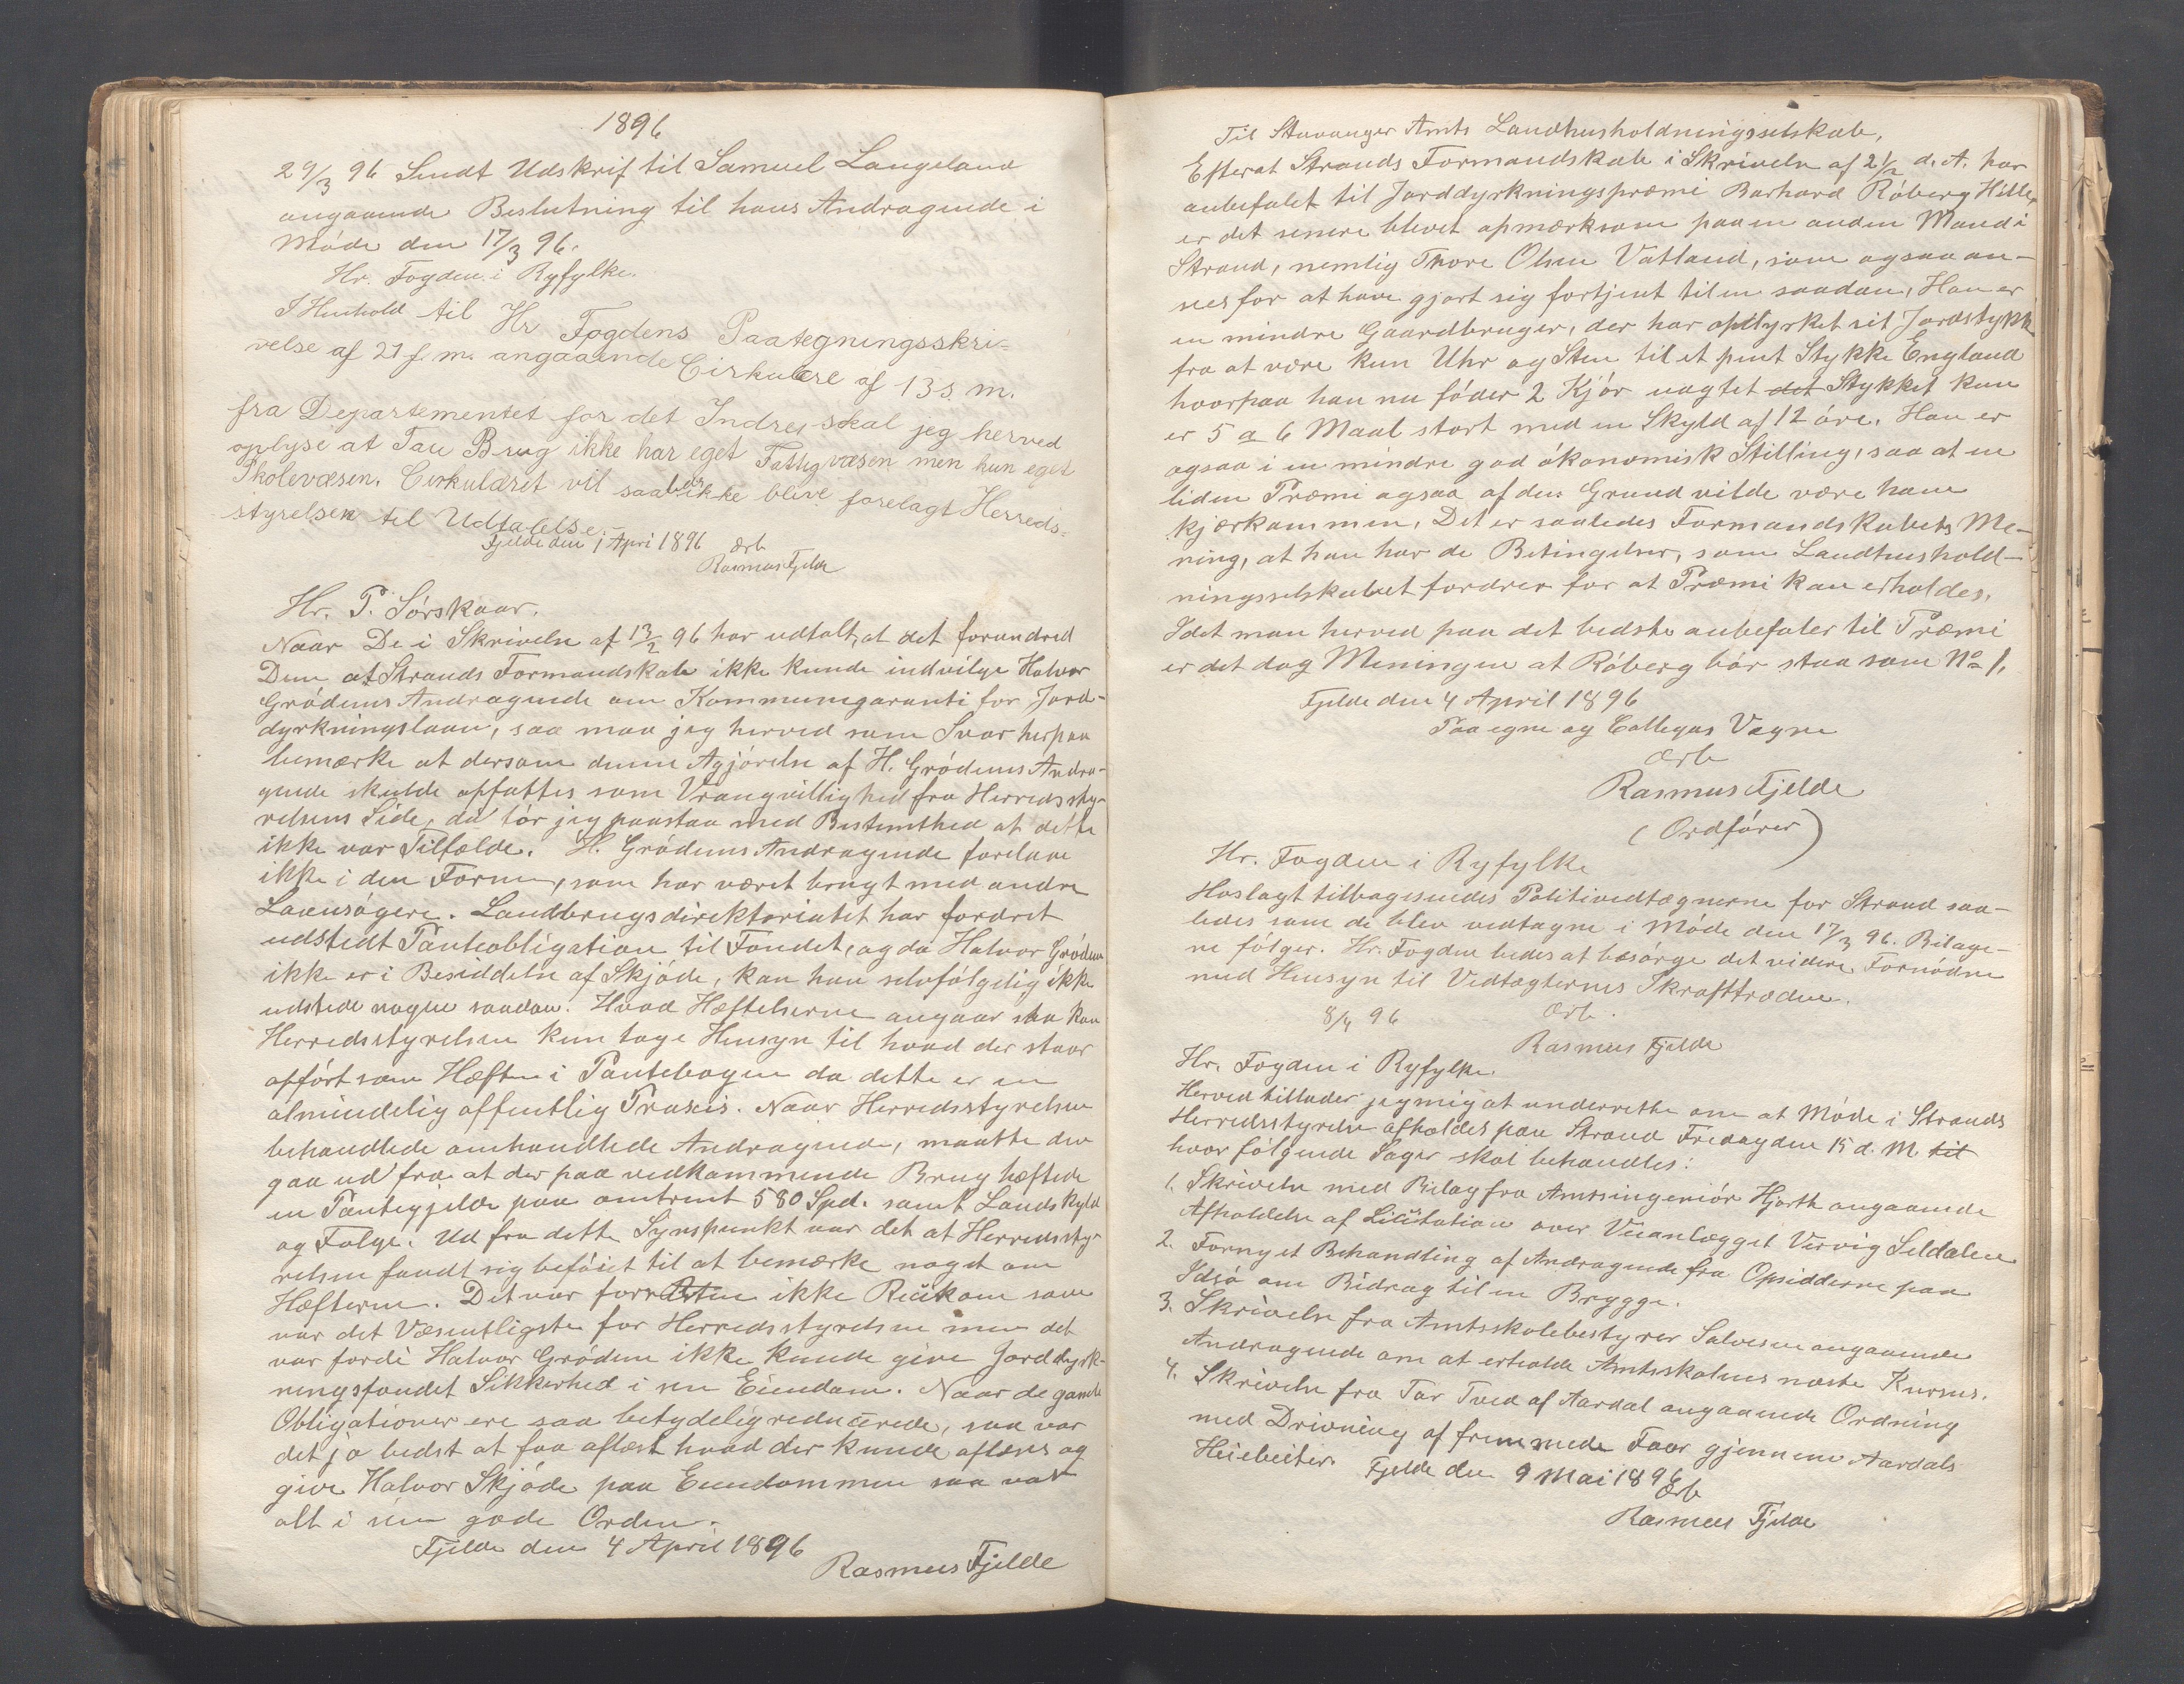 1896
29/3 96 Sendt Udskrif til Samuel Langeland
angaaende Beslutning til hans Andragende i
Møde den 17/3 96.
Hr. Fogden i Ryfylke.
I Henhold til Hr Fogdens Paategningsskri-
velse af 21 f. m. angaaende Cirkulære af 13 s. m.
fra Departementet for det Indre, skal jeg herved
oplyse at Tau Brug ikke har eget Fattigvæsen men kun eget
Skolevæsen. Cirkulæret vil saaledes ikke blive forelagt Herreds-
styrelsen til Udtalelse.
Fjelde den 1 Apri 1896 ærb
Rasmus Fjelde
Hr. P. Sørskaar.
Naar De i Skrivelse af 13/2 96 har udtalt, at det forundred
Dem at Strands Formandskab ikke kunde indvilge Halvor
Grødems Andragende om Kommunegaranti for Jord-
dyrkningslaan, saa maa jeg herved som Svar herpaa
bemærke at dersom denne Agjørelse af H. Grødems Andra-
gende skulde opfattes som Vrangvillighed fra Herredssty-
relsens Side, da tør jeg paastaa med Bestemthed at dette
ikke var Tilfælde. H. Grødems Andragende forelaae
ikke i den Form, som har været brugt med andre
Laansøgere. Landbrugsdirektoriatet har fordret
udstedt Panteobligation til Fondet, og da Halvor Grødem
ikke er i Besiddelse af Skjøde, kan han selvfølgelig ikke
udstede nogen saadan. Hvad Hæftelserne angaar saa kan
Herredsstyrelsen kun tage Hensyn til hvad der staar
opført som Hæften i Pantebogen da dette er en
almindelig offentlig Praxis. Naar Herredsstyrelsen
behandlede omhandlede Andragende, maatte den
gaa ud fra at der paa vedkommende Brug hæftede
en Pantegjeld paa omtrent 580 Spd. samt Landskyld
og Følge. Ud fra dette Synspunkt var det at Herredssty-
relsen fandt sig beføiet til at bemærke noget om
Hæfterne. Det var forresten ikke som
var det Væsentligste for Herredsstyrelsen men det
var fordi Halvor Grødem ikke kunde give Jorddyrk-
ningsfondet Sikkerhed i sin Eiendom. Naar de gamle
Obligationer ere saa betydelig reducerede, saa var
det jo bedst at faa aflæst hvad der kunde aflæses og
give Halvor Skjøde paa Eiendommen saa var
alt i sin gode Orden.
Fjelde den 4 April 1896
Rasmus Fjelde
Til Stavanger Amts Landhusholdningsselskab.
Efterat Strands Formandskab i Skrivelse af 21/2 d. A. har
anbefalet til Jorddyrkningspræmi Barhard Røberg Hille,
er det senere blevet opmærksom paa en anden Mand i
Strand, nemlig Thore Olsen Vatland, som ogsaa an-
sees for at have gjort sig fortjent til en saadan. Han er
en mindre Gaardbruger, der har opdyrket sit Jordstykk
fra at være kun Uhr og Sten til et pent Stykke England
hvorpaa han nu føder 2 Kjør uagtet det Stykket kun
er 5 a 6 Maal stort med en Skyld af 12 øre. Han er
ogsaa i en mindre god økonomisk Stilling, saa at en
liden Præmi ogsaa af den Grund vilde være ham
kjærkommen. Det er saaledes Formandskabets Me-
ning, at han har de Betingelser, som Landhushold-
ningsselskabet fordrer for at Præmi kan erholdes.
Idet man herved paa det bedste anbefaler til Præmi
er det dog Meningen at Røberg bør staa som No 1.
Fjelde den 4 April 1896
Paa egne og Collegas Vegne
ærb
Rasmus Fjelde
(Ordfører)
Hr. Fogden i Ryfylke
Hoslagt tilbagesendes Politivedtægterne for Strand saa-
ledes som de blev vedtagne i Møde den 17/3 96. Bilage-
ne følger. Hr. Fogden bedes at besørge det videre Fornødne
med Hensyn til Vedtægternes Ikrafttræden.
8/4 96 ærb.
Rasmus Fjelde
Hr. Fogden i Ryfylke.
Herved tillader jeg mig at underrette om at Møde i Strands
Herredsstyrelse afholdes paa Strand Fredag den 15 d. M. til
hvor følgende Sager skal behandles:
1. Skrivelse med Bilag fra Amtsingeniør Hjorth angaaende
Afholdelse af Licitation over Veianlægget Vervig Seldalen
2. Fornyet Behandling af Andragende fra Opsidderne paa
Idsø om Bidrag til en Brygge.
3. Skrivelse fra Amtsskolebestyrer Salvesen angaaende
Andragende om at erholde Amtsskolens næste Kursus.
4. Skrivelse fra Tor Tved af Aardal angaaende Ordning
med Drivning af fremmede Faar gjennem Aardals
Heiebeiter.
Fjelde den 9 Mai 1896
ærb
Rasmus Fjelde